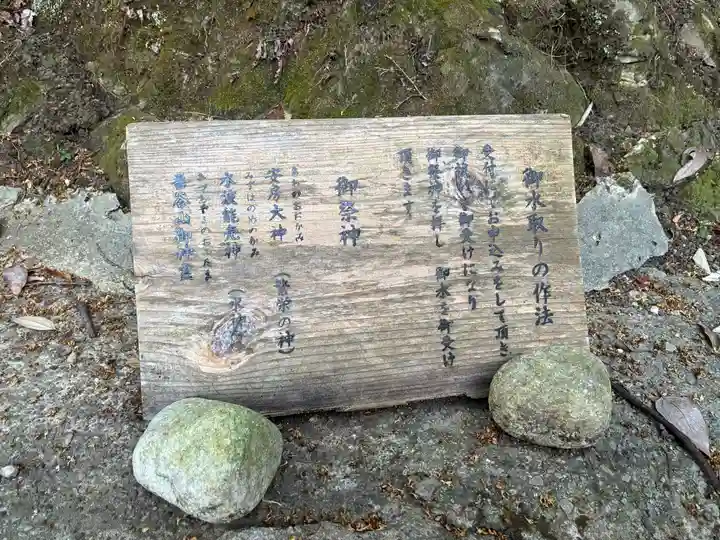 御水取りの作法
受付にてお申込みをして頂き
御祓いを御受けになり
御祭神を拝し 御水を御受け
頂きます。
御祭神
あわのおおかみ
安房大神 (水栄の神)
みずはのめのかみ
水波能売神